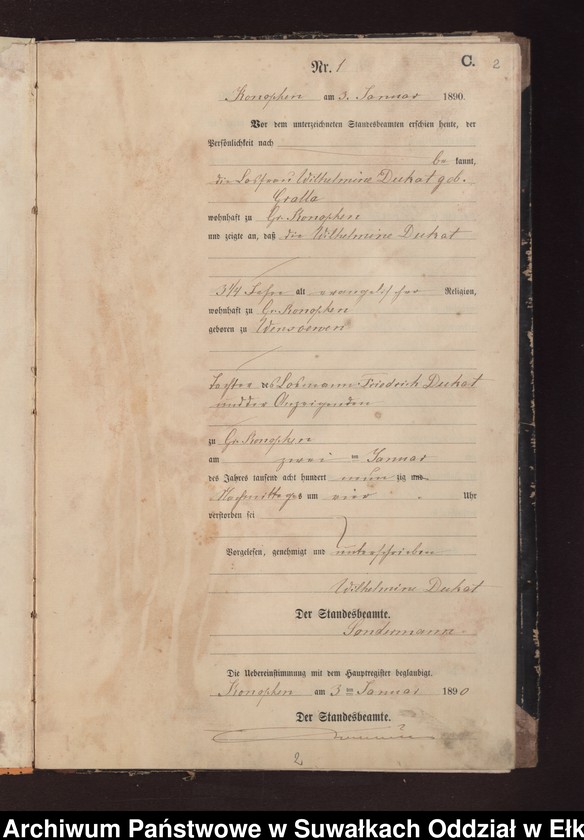 C. 2
Nr. 1
Konophen am 3. Januar 1890.
Vor dem unterzeichneten Standesbeamten erschien heute, der
Persönlichkeit nach
be kannt,
die Losfrau Wilhelmine Duhat geb.
Gralla
wohnhaft zu Gr. Konophen
und zeigte an, daß die Wilhelmine Duhat
3 1/4 Jahre alt evangelischer Religion,
wohnhaft zu Gr. Konophen
geboren zu Wensowen
Tochter des Losmann Friedrich Duhat
und der Anzeigenden
zu Gr. Konophen
am zwei ten Januar
des Jahres tausend acht hundert neun zig und
Nachmittags um vier Uhr
verstorben sei
Vorgelesen, genehmigt und unterschrieben
Wilhelmine Duhat
Der Standesbeamte.
Die Uebereinstimmung mit dem Hauptregister beglaubigt.
Konophen am 3 ten Januar 1890
Der Standesbeamte.
2
Archiwum Państwowe w Suwałkach Oddział w Ełk